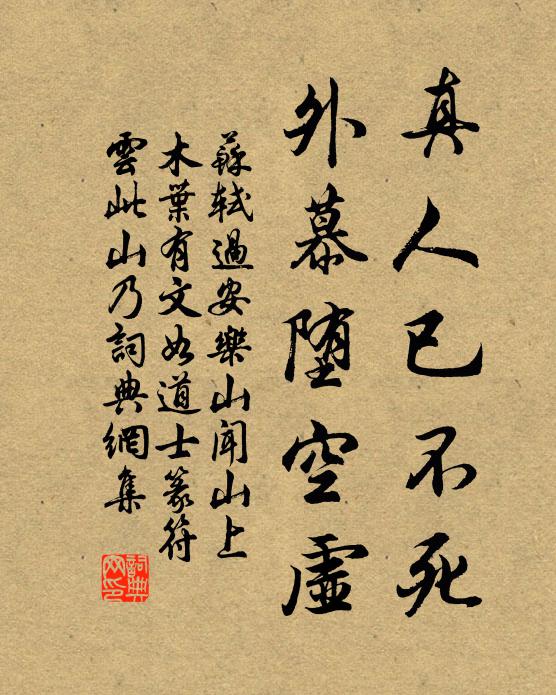 真人已不死
外慕堕空虛
蘇軾過安樂山聞山上
木葉有文如道士篆符
雲此山乃詞典網集
詞典网印